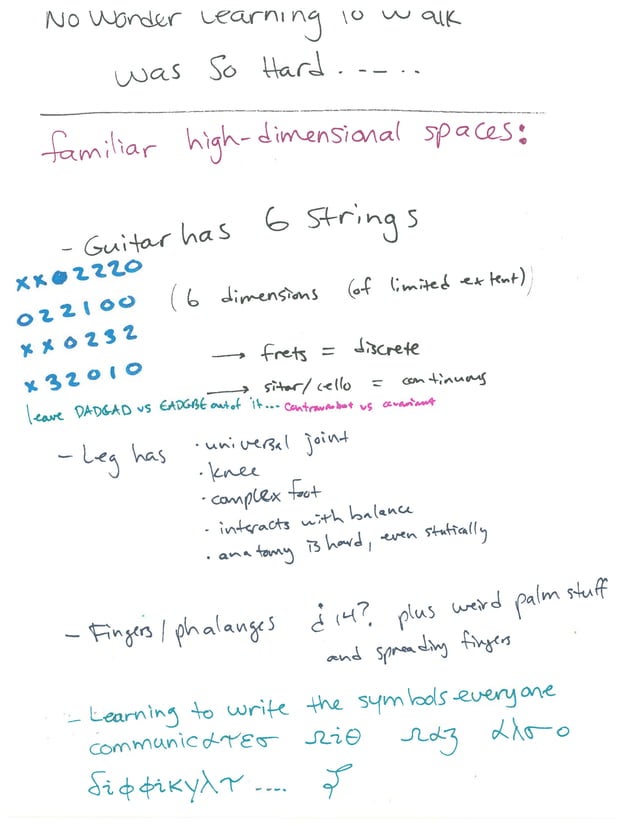 No Wonder Learning to Walk
was so Hard.....
familiar high-dimensional spaces:
- Guitar has 6 strings
xx02220
022100
xx0232
x32010
(6 dimensions (of limited extent))
→ frets = discrete
→ sitar/cello = continuous
leave DADGAD vs EADGBE out of it... contravariant vs covariant
- Leg has
· universal joint
· knee
· complex foot
· interacts with balance
· anatomy is hard, even statically
- Fingers/phalanges ¿14? plus weird palm stuff
and spreading fingers
- Learning to write the symbols everyone
communicατεσ Ωiθ Ωαζ αλσο
διφφικυλτ....